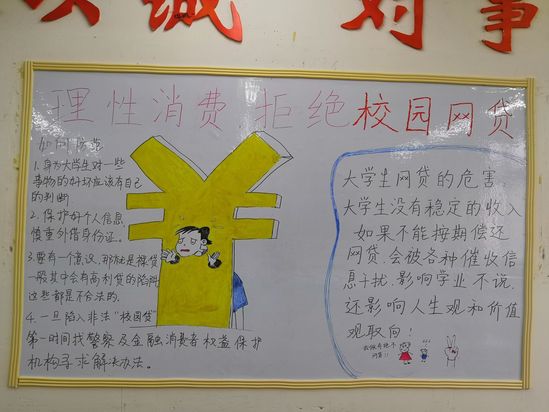 诚 对 事
理性消费 拒绝校园网贷
如何防范
1.身为大学生对一些
事物的好坏应该有自己
的判断
2.保护好个人信息
慎重外借身份证。
3.要有一个意识,那就是裸贷
一般其中会有高利贷的陷阱
这些都是不合法的.
4.一旦陷入非法“校园贷”
第一时间找警察及金融消费者权益保护
机构寻求解决办法。
大学生网贷的危害
大学生没有稳定的收入
如果不能按期偿还
网贷,会被各种催收信
息干扰.影响学业不说.
还影响人生观和价值
观取向!
网贷!!